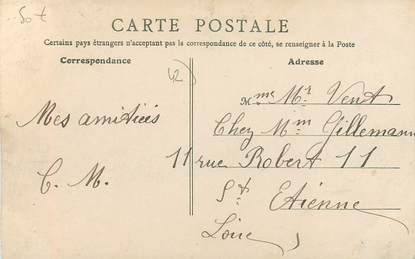 50 t
CARTE POSTALE
Certains pays étrangers n'acceptant pas la correspondance de ce côté, se renseigner à la Poste
Correspondance
Adresse
42
Mes amitiées
C. M.
M me Mr Vent
Chez Mm Gillemann
11 rue Robert 11
St Etienne
Loire